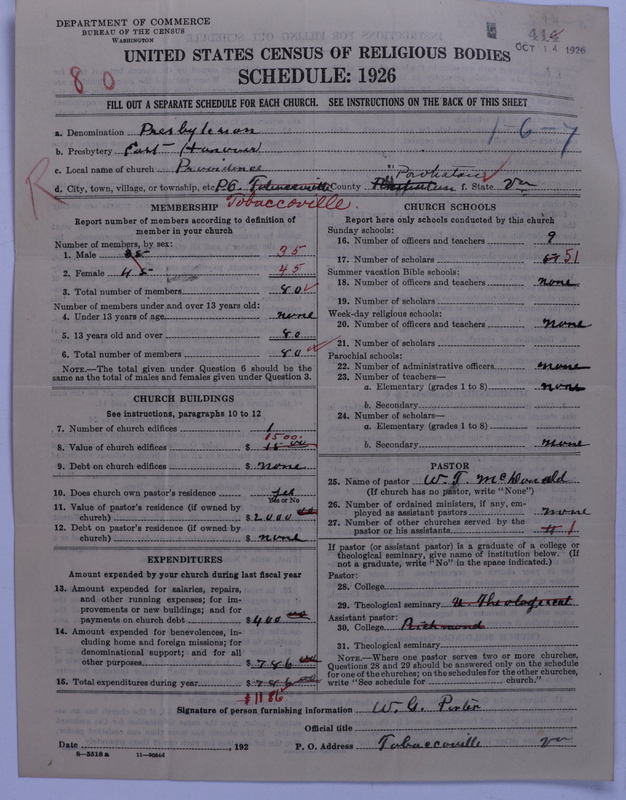 DEPARTMENT OF COMMERCE
BUREAU OF THE CENSUS
WASHINGTON
OCT 14 1926
UNITED STATES CENSUS OF RELIGIOUS BODIES
SCHEDULE: 1926
80
FILL OUT A SEPARATE SCHEDULE FOR EACH CHURCH. SEE INSTRUCTIONS ON THE BACK OF THIS SHEET
a. Denomination Presbyterian
1-6-7
b. Presbytery East Hanover
c. Local name of church Providence
Powhatan
R
d. City, town, village, or township, etc. P.O. Tobaccoville County f. State Va
Tobaccoville.
MEMBERSHIP
Report number of members according to definition of
member in your church
Number of members, by sex:
1. Male 35
2. Female 45 45
3. Total number of members 80
Number of members under and over 13 years old:
4. Under 13 years of age none
5. 13 years old and over 80
6. Total number of members 80
NOTE.—The total given under Question 6 should be
same as the total of males and females given under Question 3.
CHURCH BUILDINGS
See instructions, paragraphs 10 to 12
7. Number of church edifices 1
1500
8. Value of church edifices $ 15 00
9. Debt on church edifices $ none
10. Does church own pastor's residence yes
Yes or No
11. Value of pastor's residence (if owned by
church) $ 2000 00
12. Debt on pastor's residence (if owned by
church) $ none
EXPENDITURES
Amount expended by your church during last fiscal year
13. Amount expended for salaries, repairs,
and other running expenses; for im-
provements or new buildings; and for
payments on church debt $ 400 00
14. Amount expended for benevolences, in-
cluding home and foreign missions; for
denominational support; and for all
other purposes $ 786 00
15. Total expenditures during year $ 786 00
$1186
CHURCH SCHOOLS
Report here only schools conducted by this church
Sunday schools:
16. Number of officers and teachers 9
17. Number of scholars 51
Summer vacation Bible schools:
18. Number of officers and teachers none
19. Number of scholars
Week-day religious schools:
20. Number of officers and teachers none
21. Number of scholars
Parochial schools:
22. Number of administrative officers none
23. Number of teachers—
a. Elementary (grades 1 to 8) none
b. Secondary
24. Number of scholars—
a. Elementary (grades 1 to 8)
b. Secondary none
PASTOR
25. Name of pastor W. T. McDonald
(If church has no pastor, write "None")
26. Number of ordained ministers, if any, em-
ployed as assistant pastors none
27. Number of other churches served by the
pastor or his assistants 1
If pastor (or assistant pastor) is a graduate of a college or
theological seminary, give name of institution below. (If
not a graduate, write "No" in the space indicated.)
Pastor:
28. College
29. Theological seminary U Theological
Assistant pastor:
30. College Richmond
31. Theological seminary
NOTE.—Where one pastor serves two or more churches,
Questions 28 and 29 should be answered only on the schedule
for one of the churches; on the schedules for the other churches,
write "See schedule for church."
Signature of person furnishing information W. G. Porter
Official title
Date , 192 P. O. Address Tobaccoville Va
8—5518 a